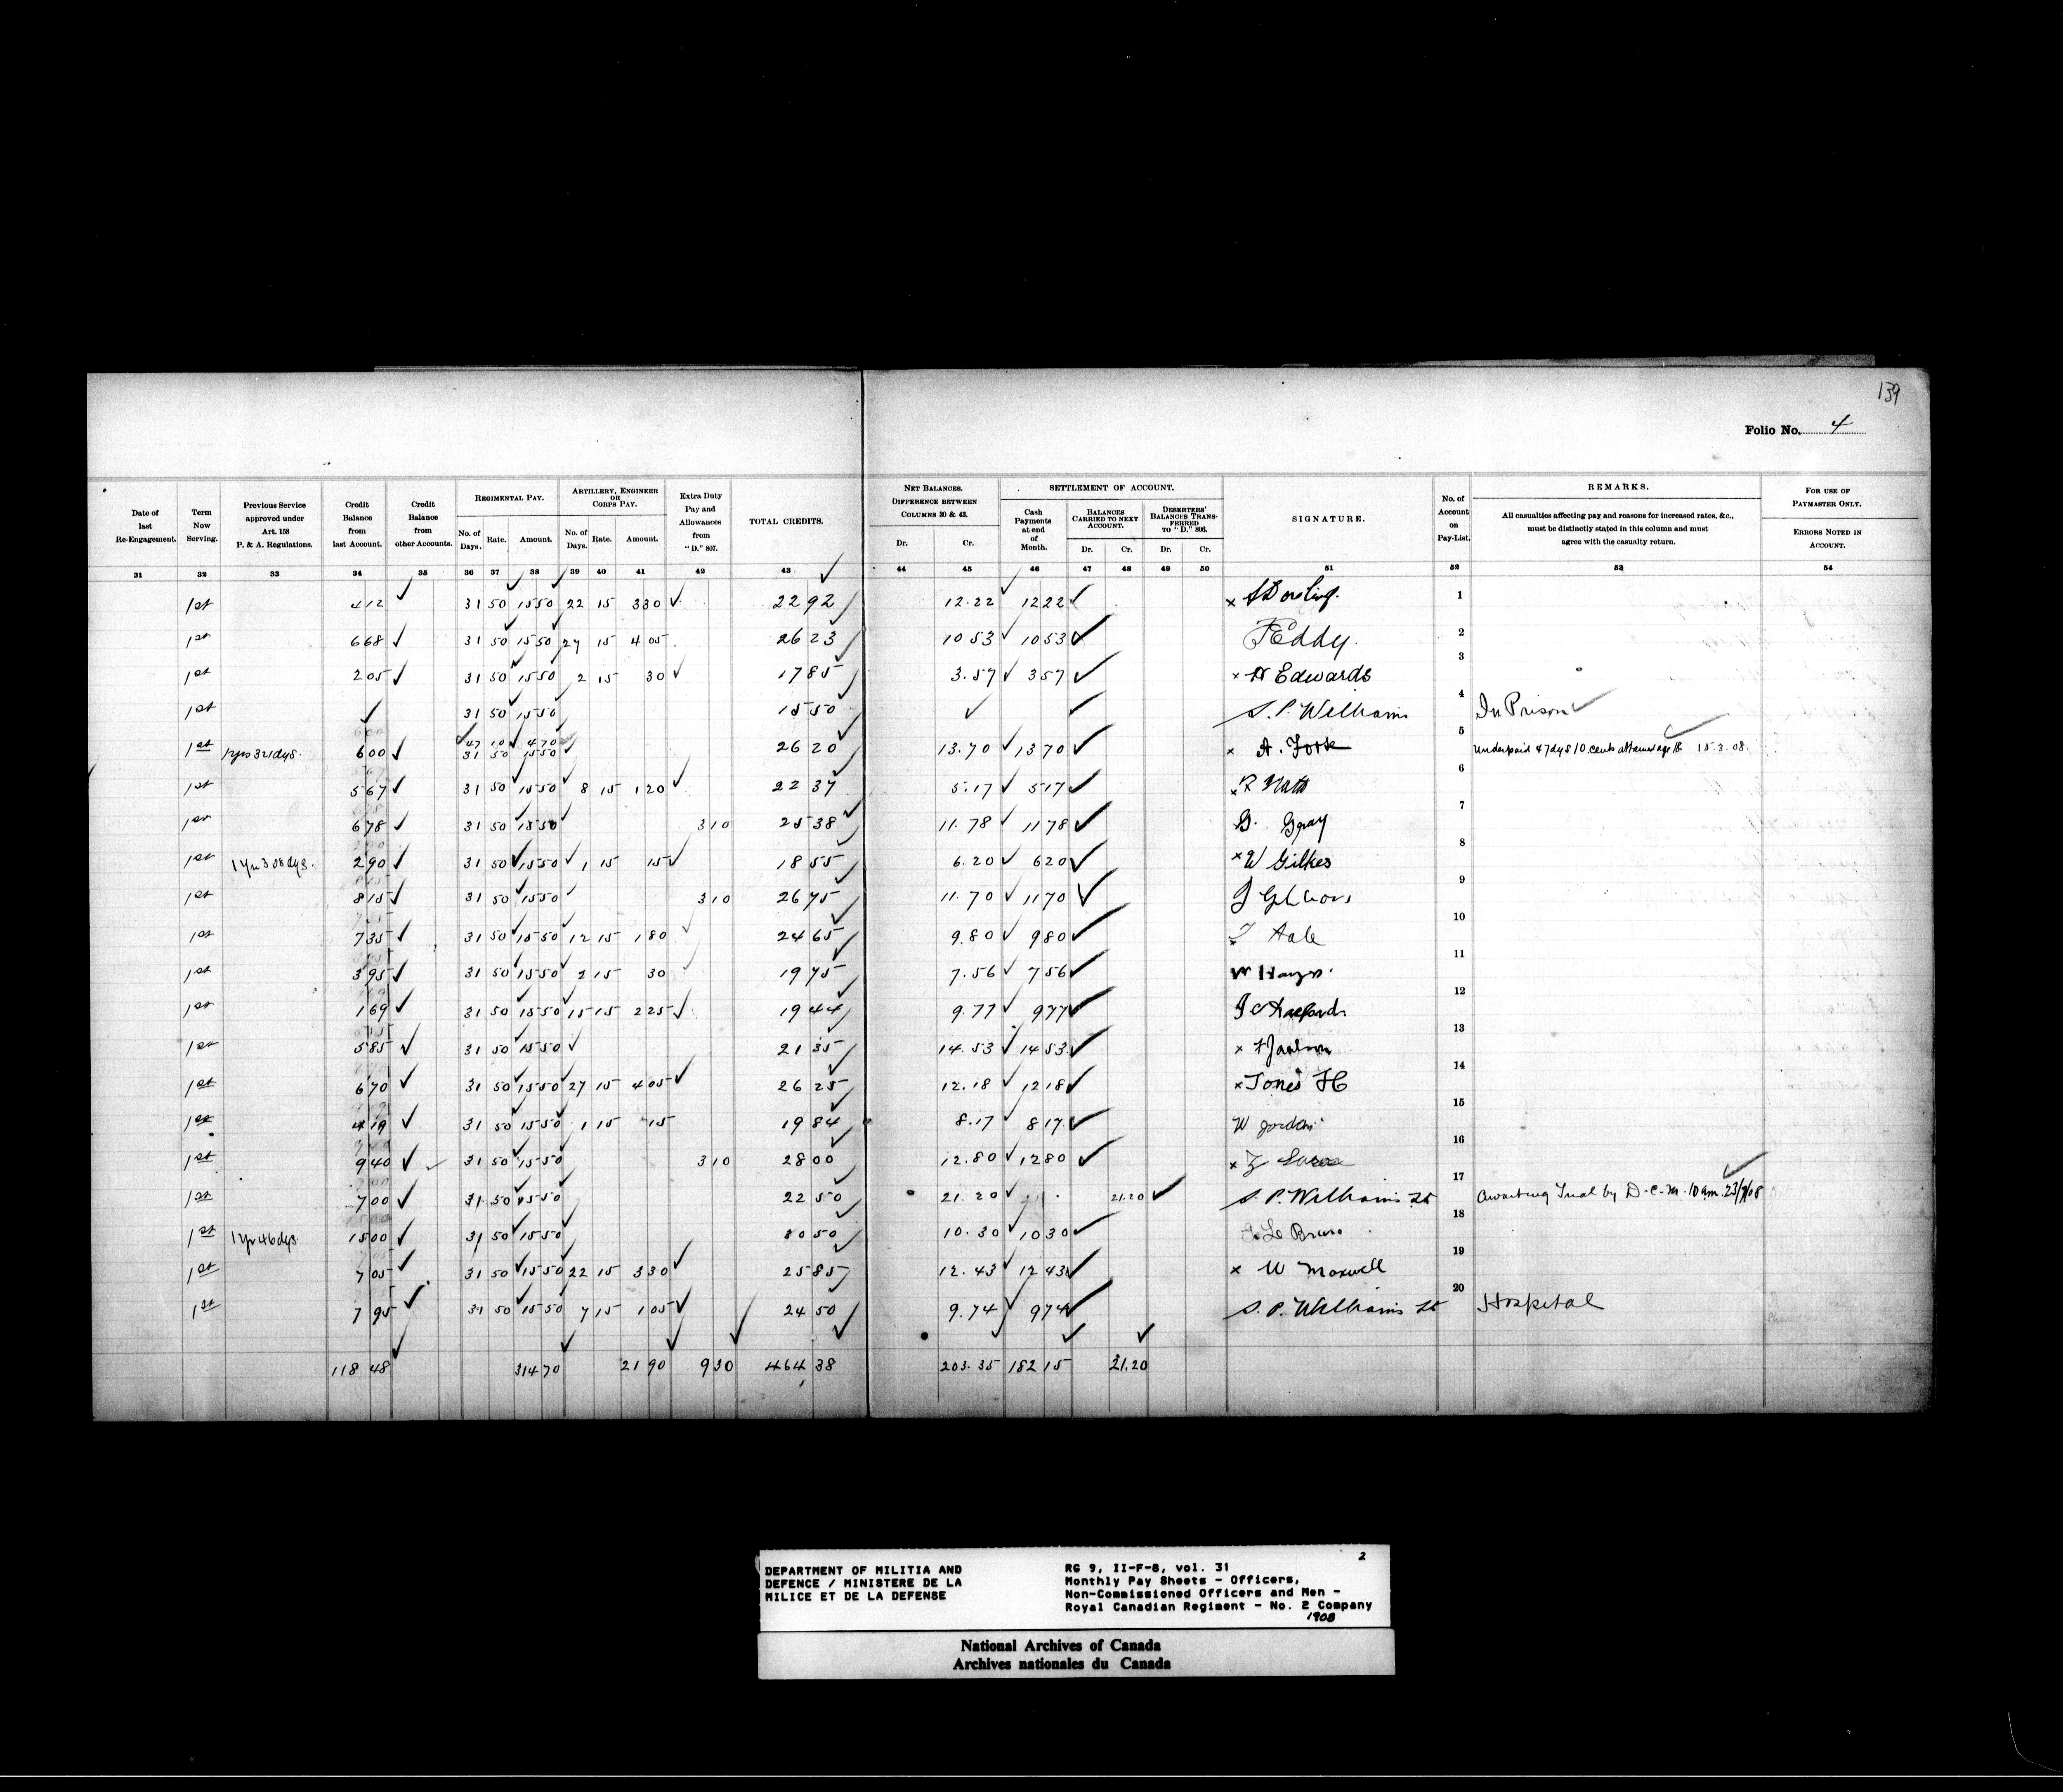 139
Folio No. 4
Date of last Re-Engagement.
Term Now Serving.
Previous Service approved under Art. 158 P. & A. Regulations.
Credit Balance from last Account.
Credit Balance from other Accounts.
REGIMENTAL PAY.
No. of Days. Rate. Amount.
ARTILLERY, ENGINEER OR CORPS PAY.
No. of Days. Rate. Amount.
Extra Duty Pay and Allowances from "D." 807.
TOTAL CREDITS.
NET BALANCES. DIFFERENCE BETWEEN COLUMNS 30 & 43.
Dr. Cr.
SETTLEMENT OF ACCOUNT.
Cash Payments at end of Month.
BALANCES CARRIED TO NEXT ACCOUNT.
Dr. Cr.
DESERTERS' BALANCES TRANSFERRED TO "D." 806.
Dr. Cr.
SIGNATURE.
No. of Account on Pay-List.
REMARKS.
All casualties affecting pay and reasons for increased rates, &c., must be distinctly stated in this column and must agree with the casualty return.
FOR USE OF PAYMASTER ONLY.
ERRORS NOTED IN ACCOUNT.
31 32 33 34 35 36 37 38 39 40 41 42 43 44 45 46 47 48 49 50 51 52 53 54
1st 412 31 50 1550 22 15 330 2292 12.22 1222 x 1
1st 668 31 50 1550 27 15 405 2623 1053 1053 Eddy 2
1st 205 31 50 1550 2 15 30 1785 3.57 357 x Edwards 3
1st 31 50 1550 1550 S. P. Williams 4 In Prison
1st 1yrs 321dys. 600 47 10 470 31 50 1550 2620 13.70 1370 x A. 5 Underpaid 47dys 10 cents 15.3.08.
1st 567 31 50 1550 8 15 120 2237 5.17 517 x R 6
1st 678 31 50 1550 310 2538 11.78 1178 G. Gray 7
1st 1yr 308dys. 290 31 50 1550 1 15 15 1855 6.20 620 x W Gilkes 8
1st 815 31 50 1550 310 2675 11.70 1170 J 9
1st 735 31 50 1550 12 15 180 2465 9.80 980 10
1st 395 31 50 1550 2 15 30 1975 7.56 756 W 11
1st 169 31 50 1550 15 15 225 1944 9.77 977 12
1st 585 31 50 1550 2135 14.53 1453 x 13
1st 670 31 50 1550 27 15 405 2625 12.18 1218 x Jones 14
1st 419 31 50 1550 1 15 15 1984 8.17 817 W Jordan 15
1st 940 31 50 1550 310 2800 12.80 1280 x 16
1st 700 31 50 1550 2250 21.20 21.20 S. P. Williams Lt 17 Awaiting Trial by D.C.M. 10 am.
1st 1yr 46dys. 1500 31 50 1550 3050 10.30 1030 Le Brun 18
1st 705 31 50 1550 22 15 330 2585 12.43 1243 x W Maxwell 19
1st 795 31 50 1550 7 15 105 2450 9.74 974 S. P. Williams Lt 20 Hospital
118 48 31470 2190 930 464 38 203.35 182 15 21.20
2
DEPARTMENT OF MILITIA AND
DEFENCE / MINISTERE DE LA
MILICE ET DE LA DEFENSE
RG 9, II-F-8, vol. 31
Monthly Pay Sheets - Officers,
Non-Commissioned Officers and Men -
Royal Canadian Regiment - No. 2 Company
1908
National Archives of Canada
Archives nationales du Canada